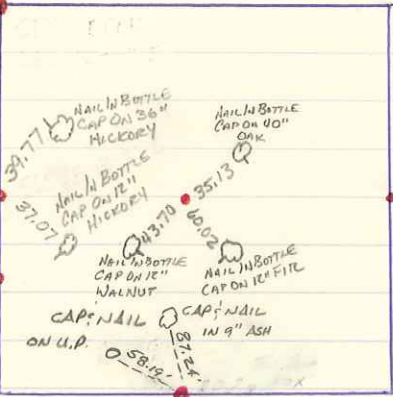 NAIL IN BOTTLE
CAP ON 36"
HICKORY
39.77
NAIL IN BOTTLE
CAP ON 40"
OAK
35.13
NAIL IN BOTTLE
CAP ON 12"
HICKORY
37.07
43.70
60.02
NAIL IN BOTTLE
CAP ON 12"
WALNUT
NAIL IN BOTTLE
CAP ON 12" FIR
CAP & NAIL
ON U.P.
CAP & NAIL
IN 9" ASH
58.19
87.24